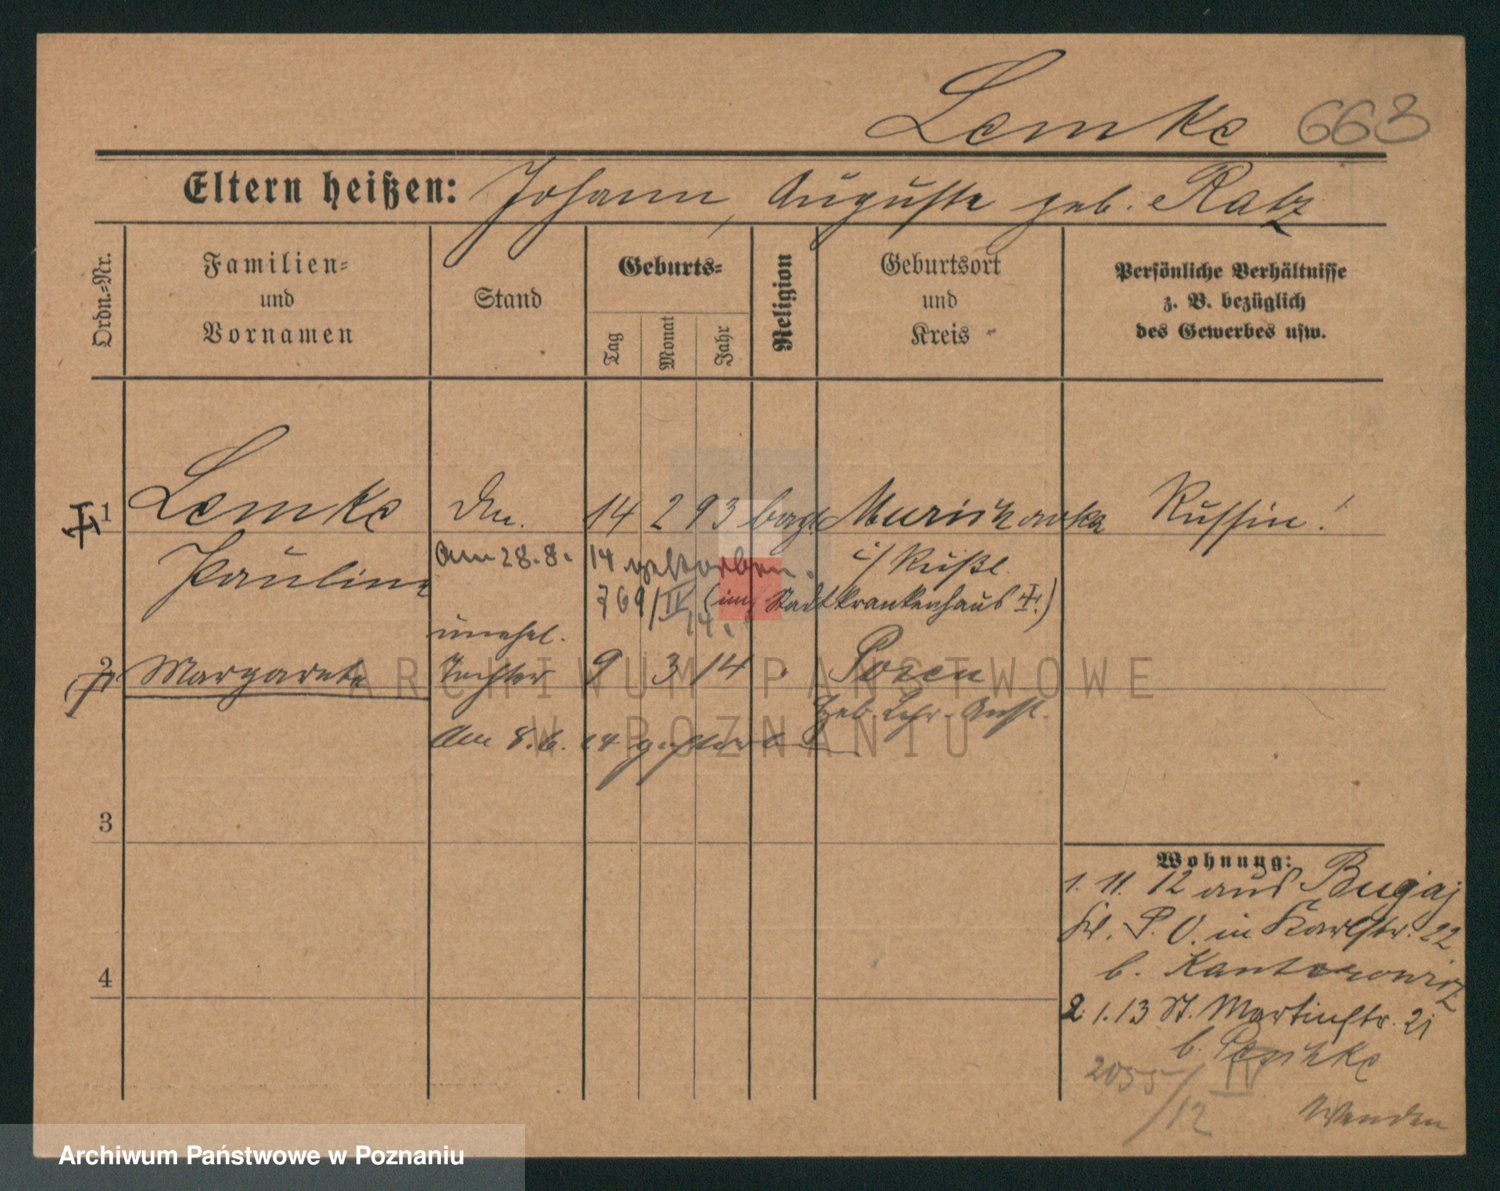 Lemke 663
Eltern heißen: Johann, Auguste geb. Ratz
Ordn.-Nr.
Familien- und Vornamen
Stand
Geburts-
Tag
Monat
Jahr
Religion
Geburtsort und Kreis
Persönliche Verhältnisse z. B. bezüglich des Gewerbes usw.
1 Lemke 14 2 93 Russin!
Pauline am 28.8. 14 gestorben. i/ Rußl.
769/IV (im Stadtkrankenhaus)
14.
unehel.
2 Margarete Tochter 9 3 14 Posen
Heb. Lehr-Anst.
Am 8.6. 14 gestorben
3
Wohnung:
1. 11. 12 aus Bugaj
P. O. in Karlstr. 22
b. Kantorowicz
4
2. 1. 13 St. Martinstr. 21
b.
2055/IV
12
Wenden
ARCHIWUM PAŃSTWOWE
W POZNANIU
Archiwum Państwowe w Poznaniu